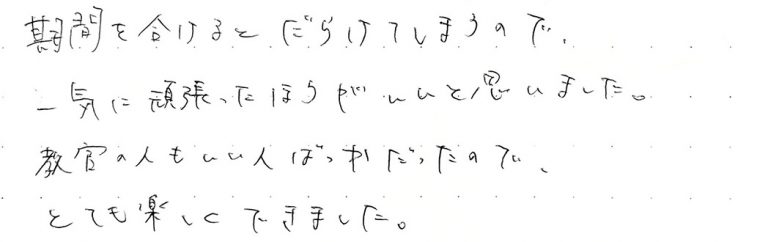 期間を合けるとだらけてしまうので、
一気に頑張ったほうがいいと思いました。
教官の人もいい人ばっかだったので、
とても楽しくできました。